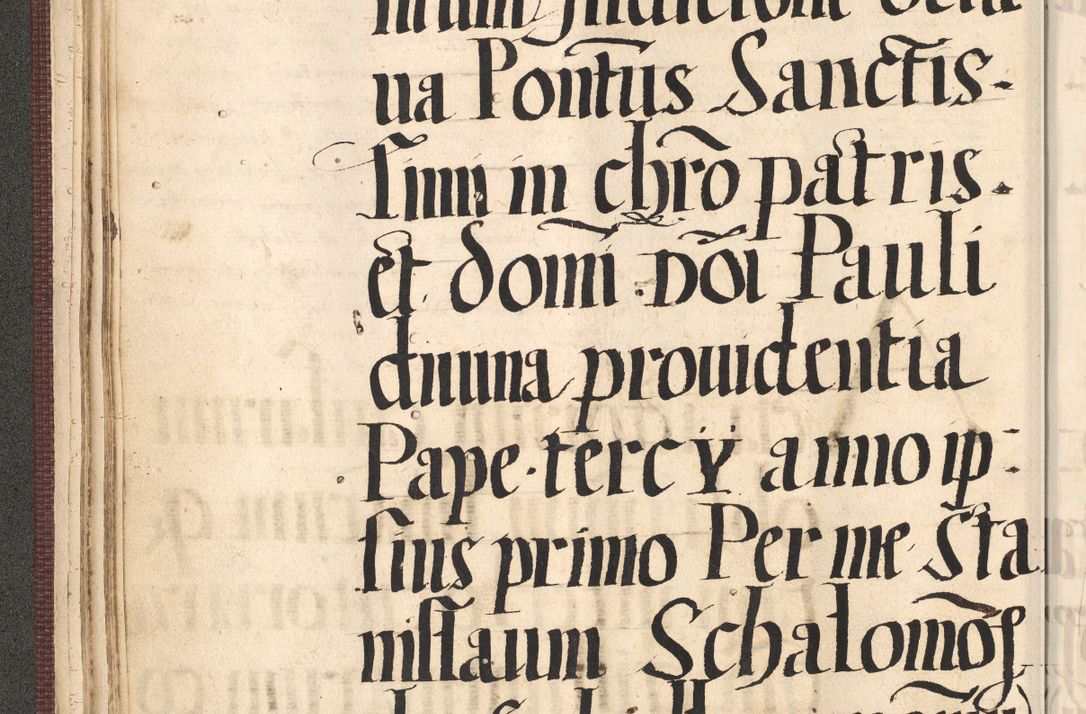 ua Pontūs Sanctis-
simi in chrō patris.
et domī nōi Pauli
diuina prouidentia
Pape tercÿ anno ip:
sius primo Per me Sta
nislaum Schalomōs